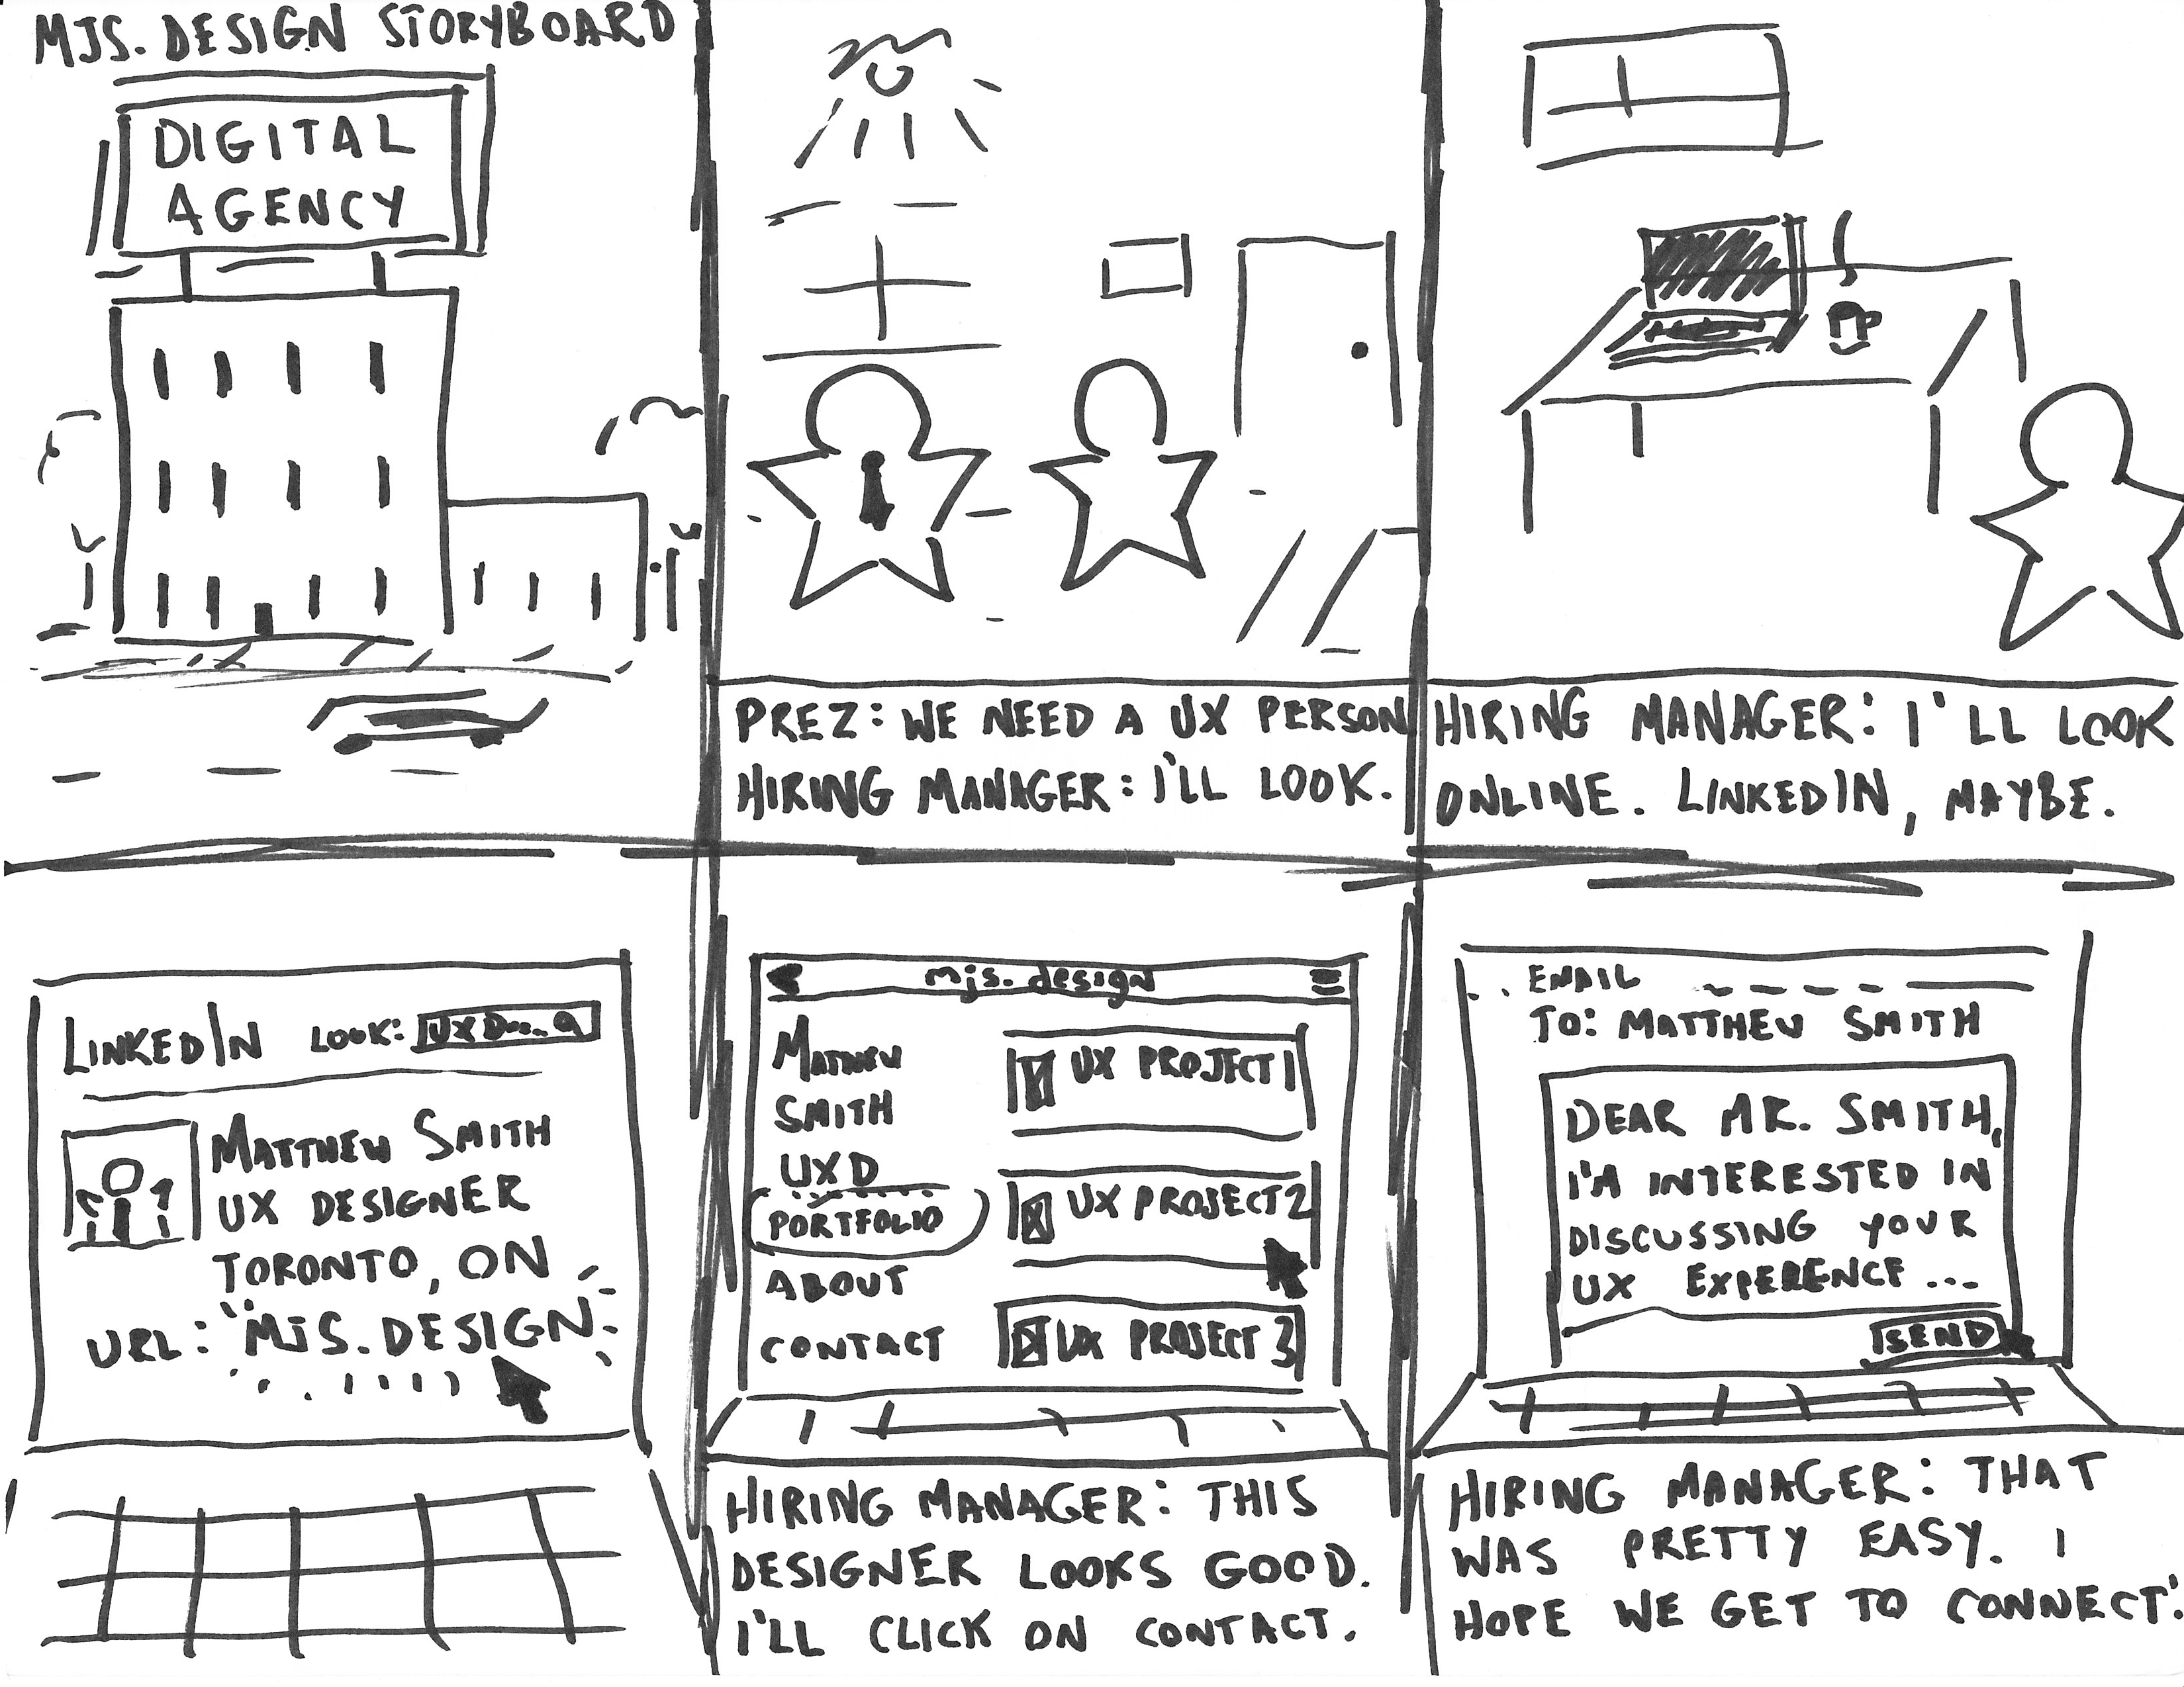 MJS. DESIGN STORYBOARD
DIGITAL
AGENCY
PREZ: WE NEED A UX PERSON
HIRING MANAGER: I'LL LOOK.
HIRING MANAGER: I'LL LOOK
ONLINE. LINKEDIN, MAYBE.
LINKEDIN LOOK: UX D....
MATTHEW SMITH
UX DESIGNER
TORONTO, ON
URL: "MJS. DESIGN
mjs. design
MATTHEW
SMITH
UXD
PORTFOLIO
ABOUT
CONTACT
UX PROJECT 1
UX PROJECT 2
UX PROJECT 3
HIRING MANAGER: THIS
DESIGNER LOOKS GOOD.
I'LL CLICK ON CONTACT.
EMAIL
TO: MATTHEW SMITH
DEAR MR. SMITH,
I'M INTERESTED IN
DISCUSSING YOUR
UX EXPERIENCE ...
SEND
HIRING MANAGER: THAT
WAS PRETTY EASY. I
HOPE WE GET TO CONNECT.